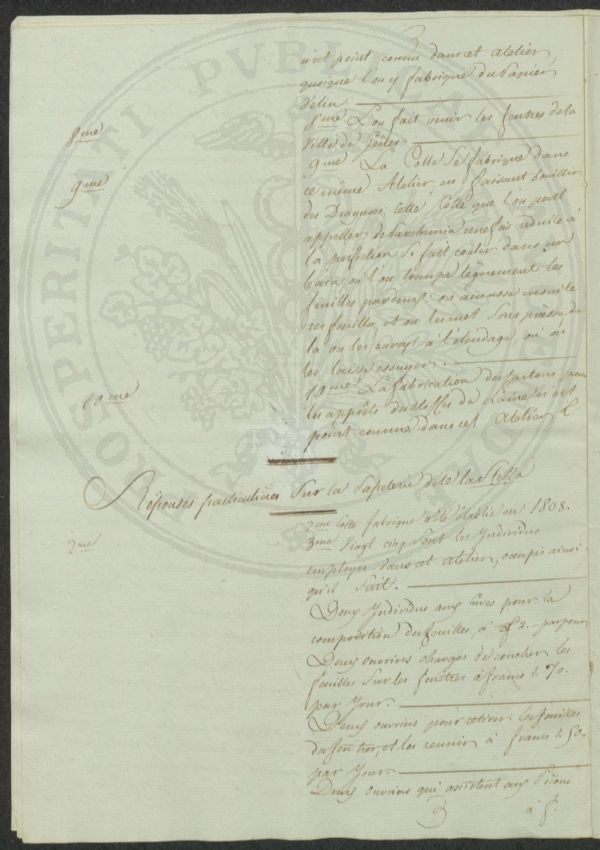 3
n'est point connu dans cet atelier
quoique l'on y fabrique du Papier
Vélin.
8me L'on fait venir les feutres de la
8me
Ville de Gênes
9me La Colle se fabrique dans
9me
ce même Atelier, en faisant bouillir
des Cette Colle que l'on peut
appeller de une fois reduite à
la perfection se fait couler dans un
bain, où l'on trempe légèrement les
feuilles par dessus: on ensuite
ces feuilles, et on les met sous presse de
là on les envoye à l'étendage, où on
les laisse essuyer.
19me La fabrication des cartons pour
19me
les apprêts des étoffes de Laine n'est
point connue dans cet Atelier
Réponses particulières Sur la Papeterie dite la Stella
2me Cette fabrique a été établie en 1808.
3me Vingt cinq sont les Individus
2me
employés dans cet atelier, occupés ainsi
qu'il suit.
Deux Individus aux cuves pour la
composition des feuilles, à f 2.- par jour
Deux ouvriers chargés de coucher les
feuilles sur les feutres à francs 1. 70.
par Jour.
Deux ouvriers pour retirer les feuilles
des feutres, et les reunir à francs 1. 50.
par Jour.
Deux ouvriers qui assistent aux Pilons
3 à f.
PROSPERITATI PVBLICAE